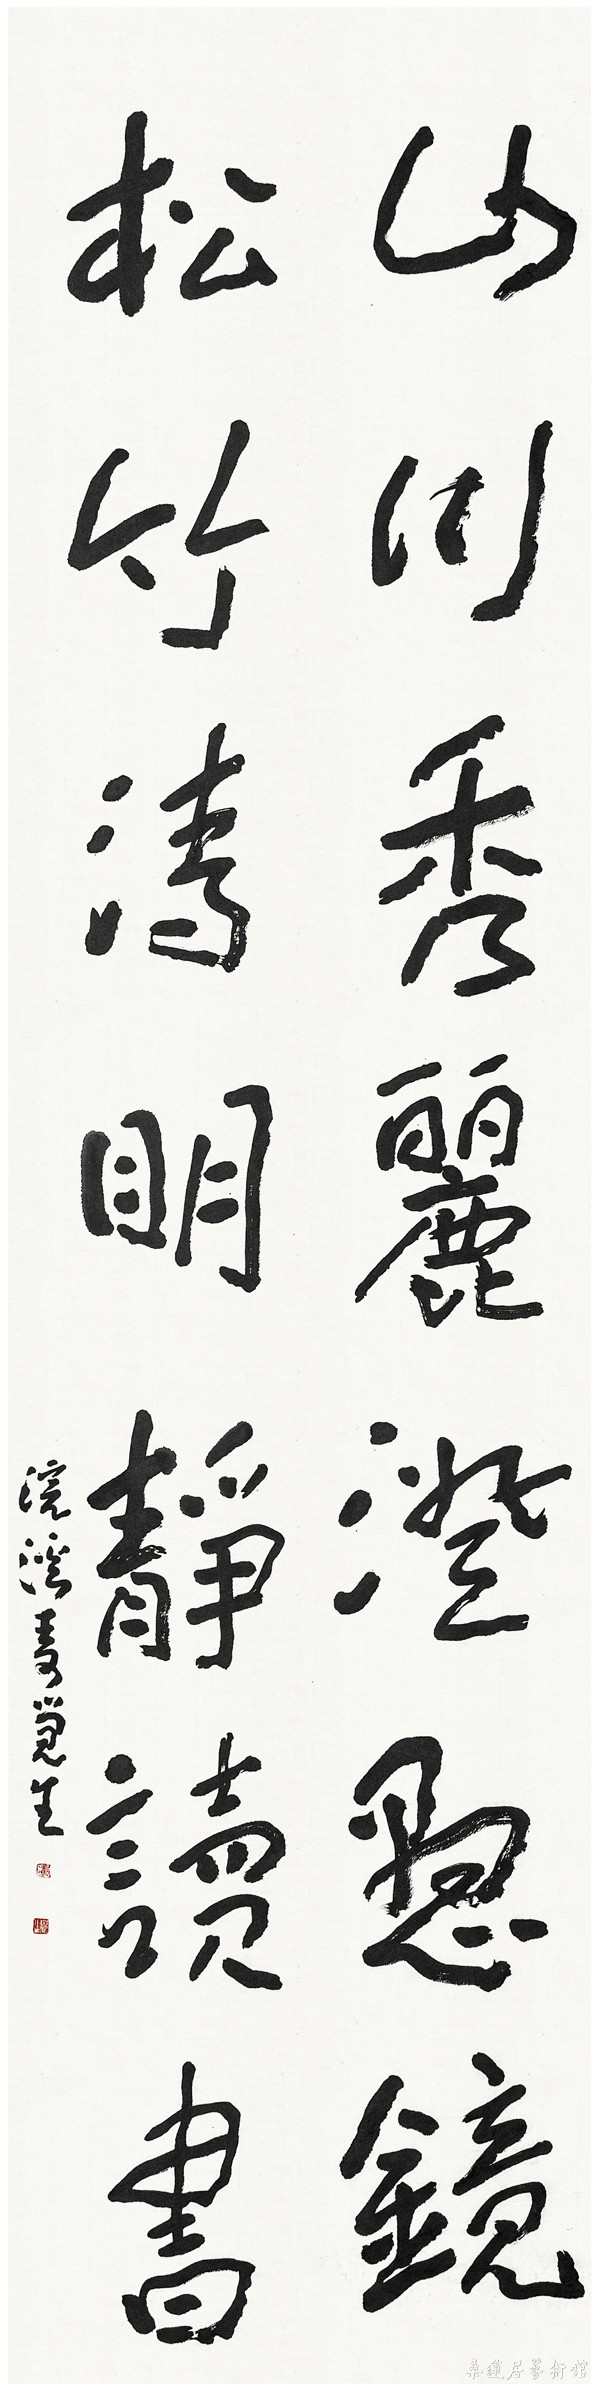 山川秀麗澄懸鏡
松竹清明靜讀書
浣溪覺生
桑蓮居藝術館